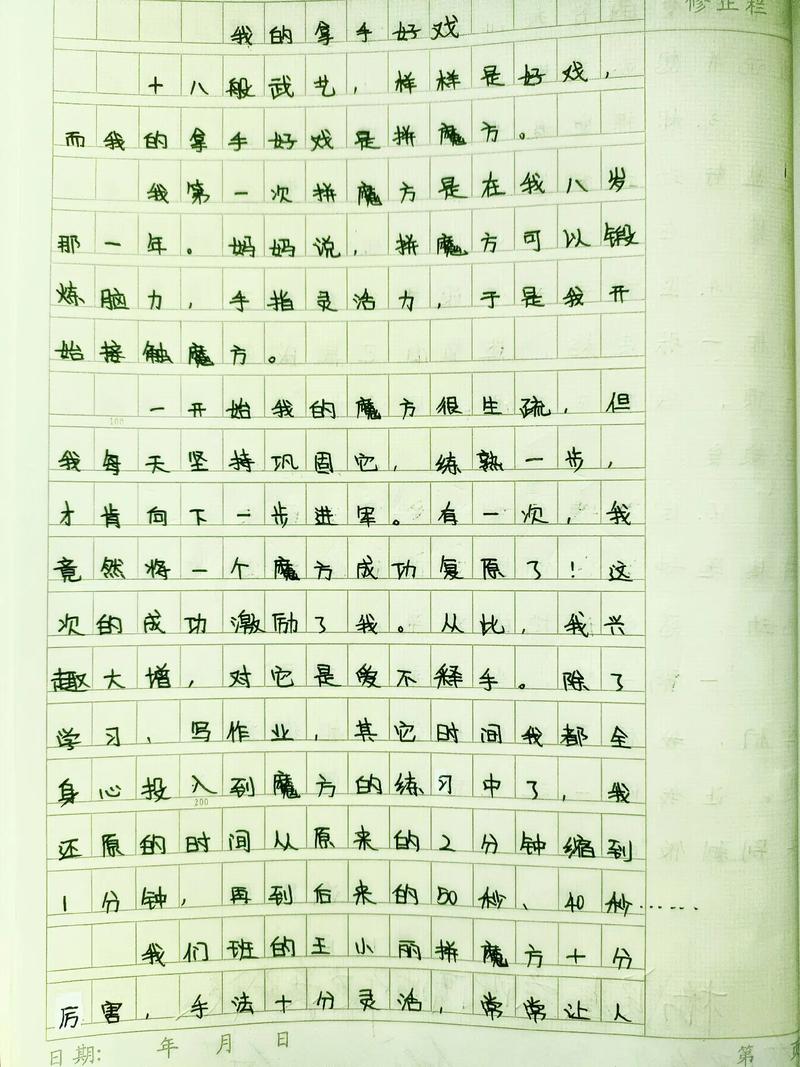 修正栏
我的拿手好戏
十八般武艺，样样是好戏，
而我的拿手好戏是拼魔方。
我第一次拼魔方是在我八岁
那一年。妈妈说，拼魔方可以锻
炼脑力，手指灵活力，于是我开
始接触魔方。
一开始我的魔方很生疏，但
100
我每天坚持巩固它，练熟一步，
才肯向下一步进军。有一次，我
竟然将一个魔方成功复原了！这
次的成功激励了我。从此，我兴
趣大增，对它是爱不释手。除了
学习、写作业，其它时间我都全
身心投入到魔方的练习中了，我
200
还原的时间从原来的2分钟缩到
1分钟，再到后来的50秒、40秒……
我们班的王小丽拼魔方十分
厉害，手法十分灵活，常常让人
日期： 年 月 日 第 页